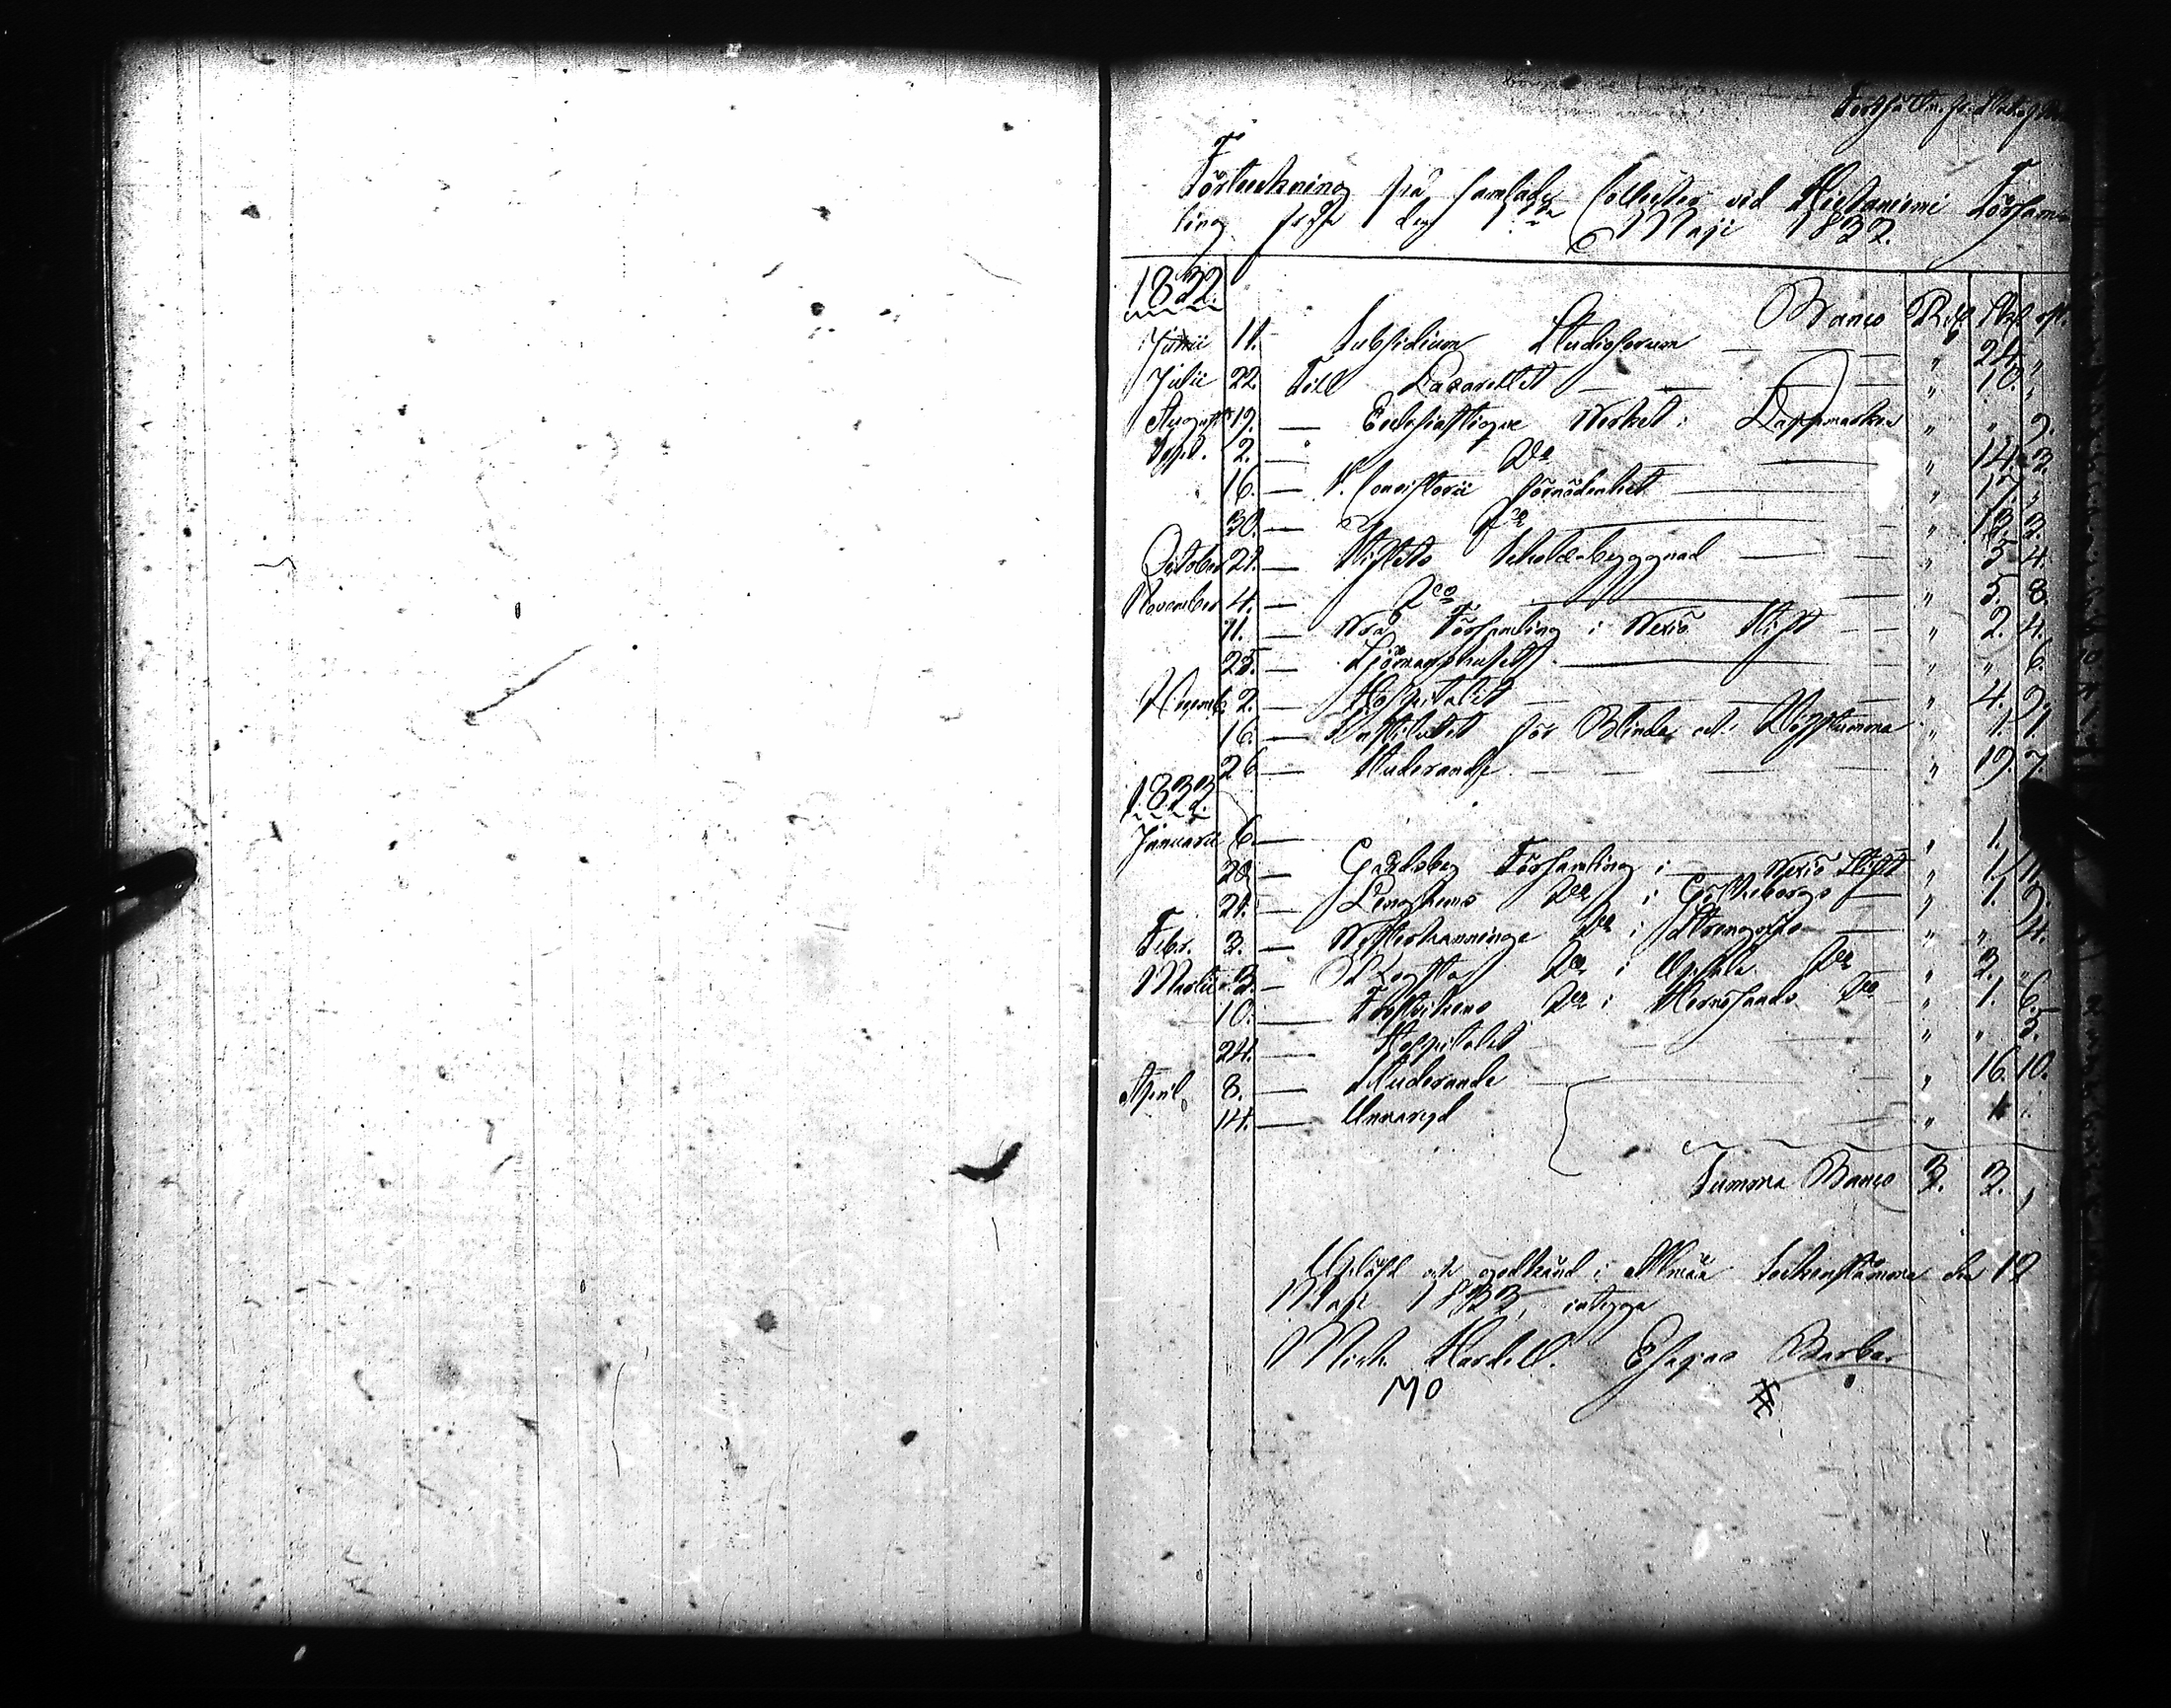 Förteckning på samlade Collecter vid Hietaniemi Försam-
ling sedan den 1sta Maji 1832.
1832.
Banco Rdr Sk. rst.
Junii 11. Subsidium Studiosorum — " 24. "
Julii 22. Till Lazarettet — " 10. "
August 19. — Ecclesiastique Werket i Lappmarken " " 9.
Sept. 2. — Do — " 14. 3.
16. — V. Consistorii förnödenhet — " 17. "
30. — Do — " 13. 3.
October 21. — Stiftets Scholæbyggnad — " 5. 4.
November 4. — Do — " 5. 8.
11. — Församling i Wexiö Stift — " 2. 4.
25. — " " 6.
Decemb. 2. — Hospitalet — " 4. 9.
16. — Institutet för Blinda och Döfstumma " 1. 1.
26. — Studerande — " 19. 7.
1833.
Januarii 6. — " 1.
20. — Församling i Wexiö Stift " 1. 11.
21. — Do i Götheborgs — " 1. 9.
Febr. 3. — Westerhanninge Do i Strengnäs — " " 4.
Martii 3. — Do i Upsala Do " 3. "
10. — Do i Hernösands Do " 1. 6.
24. — Hospitalet — " " 5.
April 8. — Studerande — " 16. 10.
14. — Unnaryd "
Summa Banco 3. 3. ,
Upläst och godkänd i Allmän Sockenstämma den 12
Maji 1833, intyga
Mich. Hardell. Esajas Barbar
MO